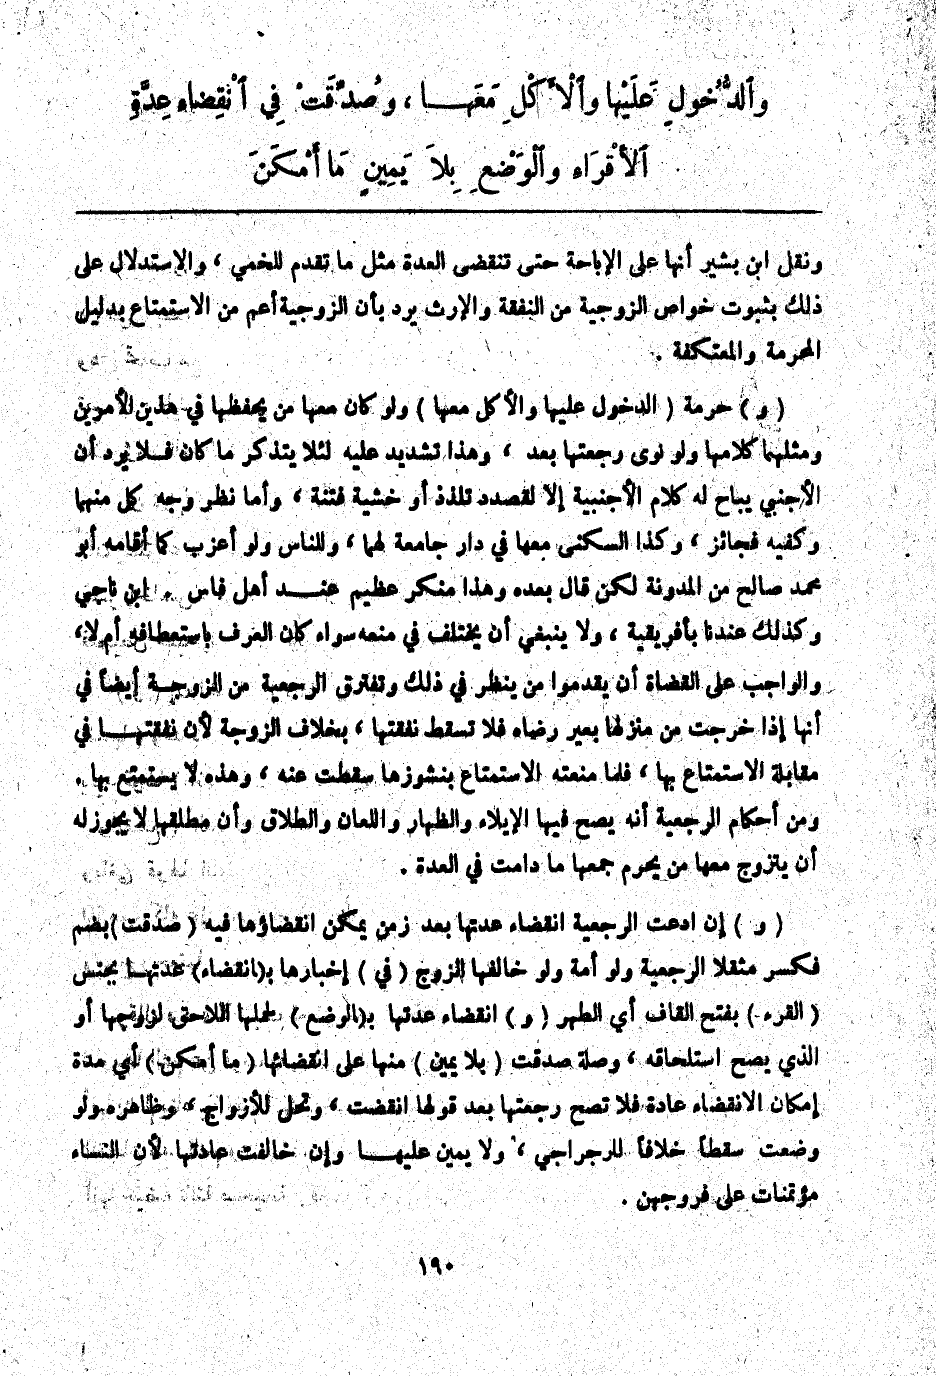 وَٱلدُّخُولِ عَلَيْهَا وَٱلْأَكْلِ مَعَهَـــا ، وَصُدِّقَتْ فِي ٱنْقِضَاءِ عِدَّةِ
ٱلأَقْرَاءِ وَٱلْوَضْعِ بِلَا يَمِينٍ مَا أَمْكَنَ
ونقل ابن بشير أنها على الإباحة حتى تنقضى العدة مثل ما تقدم للخمي ، والاستدلال على
ذلك بثبوت خواص الزوجية من النفقة والإرث يرد بأن الزوجية أعم من الاستمتاع بدليل
المحرمة والمعتكفة .
( و ) حرمة ( الدخول عليها والأكل معها ) ولو كان معها من يحفظها في هذين الأمرين
ومثلهما كلامها ولو نوى رجعتها بعد ، وهذا تشديد عليه لئلا يتذكر ما كان فـلا يرد أن
الأجنبي يباح له كلام الأجنبية إلاّ لقصدد تلذذ أو خشية فتنة ، وأما نظر وجه كل منهما
وكفيه فجائز ، وكذا السكنى معها في دار جامعة لهما ، وللناس ولو أعزب كما أقامه أبو
محمد صالح من المدونة لكن قال بعده وهذا منكر عظيم عنـــد أهل فاس . ابن ناجي
وكذلك عندنا بأفريقية ، ولا ينبغي أن يختلف في منعه سواء كان العرف باستعطافه أم لا ،
والواجب على القضاة أن يقدموا من ينظر في ذلك وتفترق الرجعية من الزوجـة أيضاً في
أنها إذا خرجت من منزلها بعير رضاه فلا تسقط نفقتها ، بخلاف الزوجة لأن نفقتهـــا في
مقابلة الاستمتاع بها ، فلما منعته الاستمتاع بنشوزها سقطت عنه ، وهذه لا يستمتع بها .
ومن أحكام الرجعية أنه يصح فيها الإيلاء والظهار واللعان والطلاق وأن مطلقها لا يجوز له
أن يتزوج معها من يحرم جمعها ما دامت في العدة .
( و ) إن ادعت الرجعية انقضاء عدتها بعد زمن يمكن انقضاؤها فيه ( صدقت ) بضم
فكسر مثقلا الرجعية ولو أمة ولو خالفها الزوج ( في ) إخبارها بـ(انقضاء) عدتهــا بجنس
( القرء ) بفتح القاف أي الطهر ( و ) انقضاء عدتها بـ(الوضع ) لحملها اللاحق لزوجها أو
الذي يصح استلحاقه ، وصلة صدقت ( بلا يمين ) منها على انقضائها ( ما أمكن ) أي مدة
إمكان الانقضاء عادة فلا تصح رجعتها بعد قولها انقضت ، وتحل للأزواج ، وظاهره ولو
وضعت سقطاً خلافاً للرجراجي ، ولا يمين عليهـــا وإن خالفت عادتها لأن النساء
مؤتمنات على فروجهن .
١٩٠